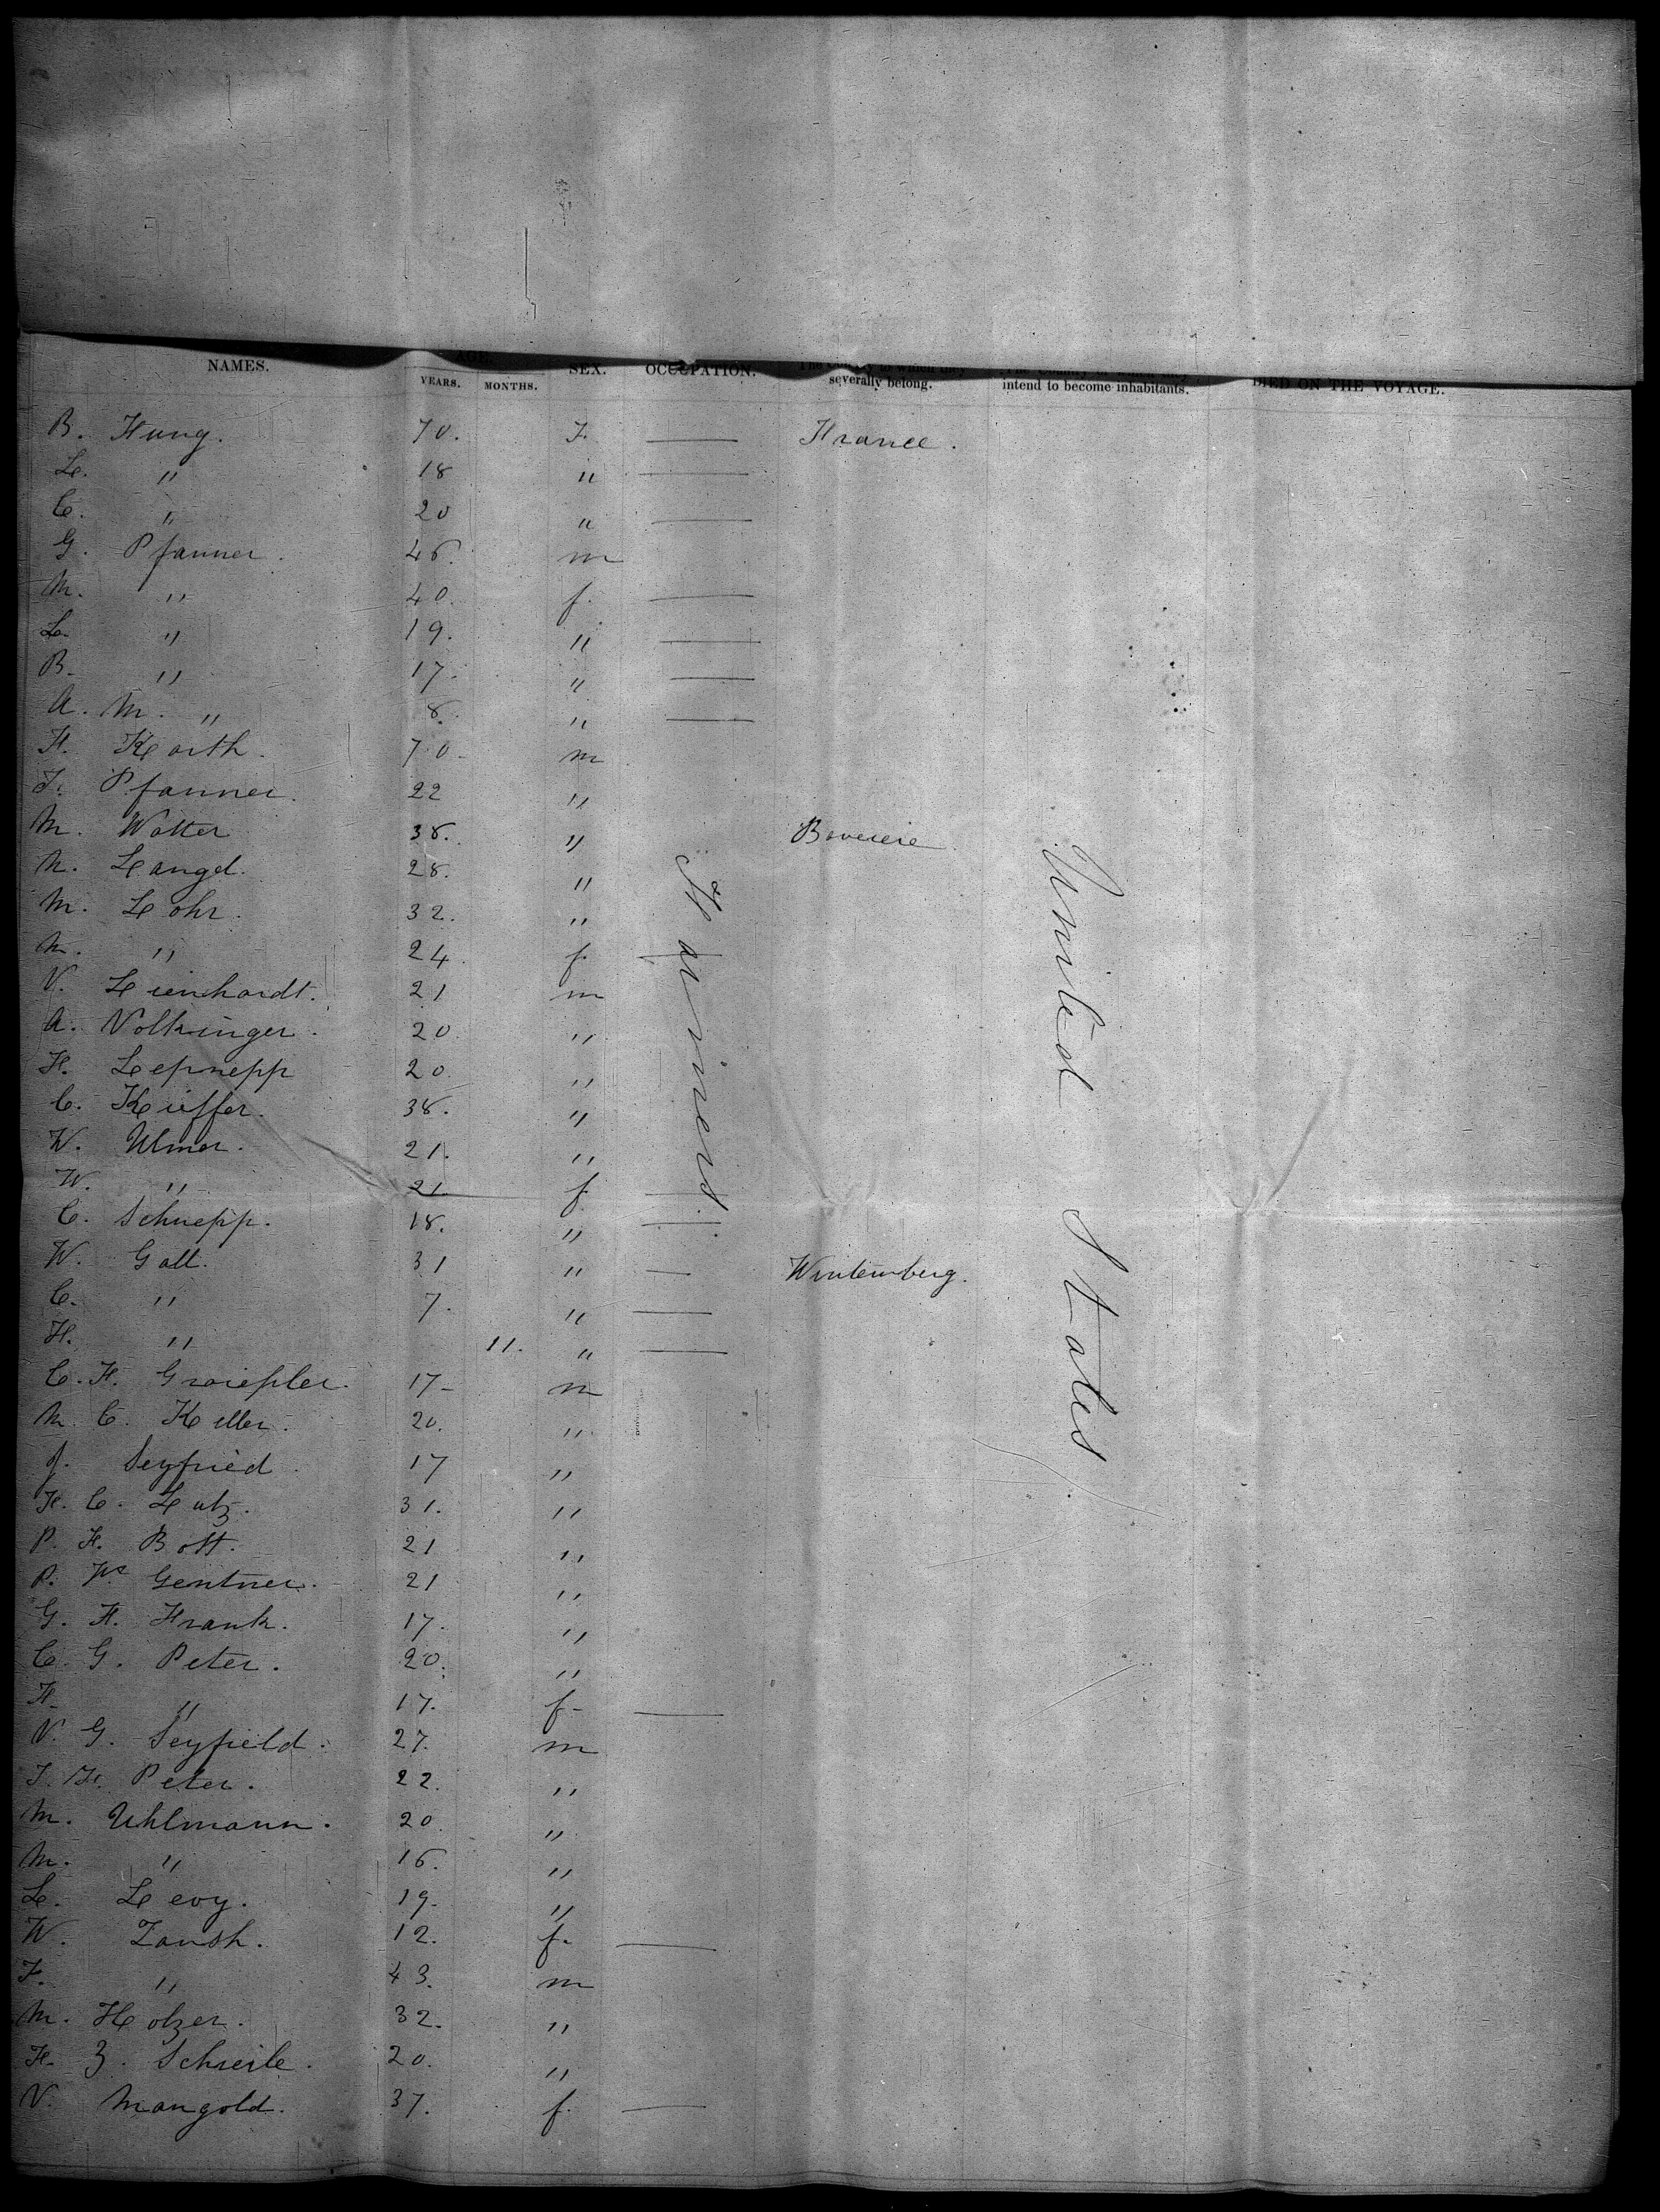 NAMES. AGE. SEX. OCCUPATION. The Country to which they severally belong. intend to become inhabitants. DIED ON THE VOYAGE.
YEARS. MONTHS.
B. Hung. 70. F. — France.
L. " 18 " —
C. " 20 " —
G. Pfanner. 46. m
M. " 40. f. —
L. " 19. " —
B. " 17. " —
A. M. " 8. " —
H. Korth. 70. m
F. Pfanner. 22 "
M. Wolter 38. " Baveeie
M. Langel. 28. "
M. Lohr. 32. "
M. " 24. f. —
V. Lienhardt. 21 m
A. Volkinger. 20. "
H. Lepnepp 20. "
C. Kieffer. 38. "
W. Ulmer. 21. "
W. " 21. f. —
C. Schnepp. 18. " —
W. Gall. 31 " — Wurtemberg.
C. " 7. " —
H. " 11. " —
C. H. Graiehler. 17- m
M. C. Keller. 20. "
J. Seyfried. 17 "
H. C. Lutz. 31. "
P. H. Bott. 21 "
P. Gentner. 21 "
G. H. Frank. 17. "
C. G. Peter. 20. "
H. " 17. f- —
V. G. Seyfield. 27. m
F. H. Peter. 22. "
M. Uhlmann. 20. "
M. " 16. "
L. Levy. 19. "
W. Zaush. 12. f. —
F. " 43. m
M. Holzer. 32. "
H. Z. Scheile. 20. "
V. Mangold. 37. f. —
Farmers.
United States